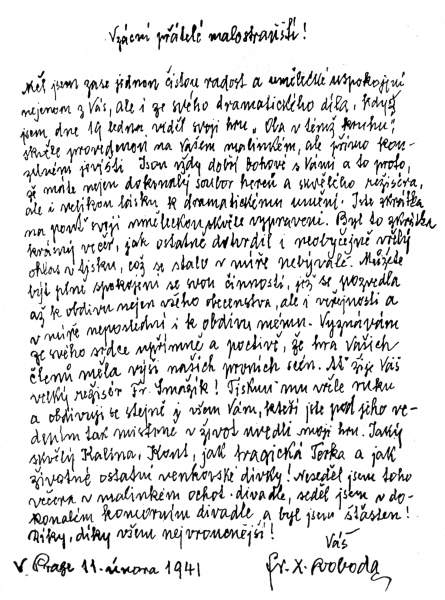 Vzácní přátelé malostranští!
Měl jsem zase jednou čistou radost a umělecké uspokojení
nejenom z Vás, ale i ze svého dramatického díla, když
jsem dne 19 ledna viděl svoji hru „Oba v témž kruhu",
skvěle provedenou na Vašem malinkém, ale přímo kou-
zelném jevišti. Jsou vždy dobří bohové s Vámi a to proto,
že máte nejen dokonalý soubor herců a skvělého režiséra,
ale i velikou lásku k dramatickému umění. Jste zkrátka
na poutí svojí umělecku skvěle vypraveni. Byl to zkrátka
krásný večer, jak ostatně dotvrdil i neobyčejně vřelý
ohlas v tisku, což se stalo v míře nebývalé. Můžete
být plni spokojeni se svou činností, jež se pozvedla
až k obdivu nejen všeho obecenstva, ale i veřejnosti a
v míře neposlední i k obdivu mému. Vyznávám
ze svého srdce upřímně a poctivě, že hra Vašich
členů měla výši našich prvních scén. Ať žije Váš
velký režisér Fr. Smažík! Tisknu mu vřele ruku
a obdivuji se stejně i všem Vám, kteří jste pod jeho ve-
dením tak mistrně v život uvedli moji hru. Jaký
skvělý Kalina, Kont, jak tragická Terka a jak
životné ostatní venkovské dívky! Neseděl jsem toho
večera v malinkém ochot. divadle, seděl jsem v do-
konalém komorním divadle a byl jsem šťasten!
Díky, díky všem nejvroucnější!
Váš
V Praze 11. února 1941
Fr. X. Svoboda